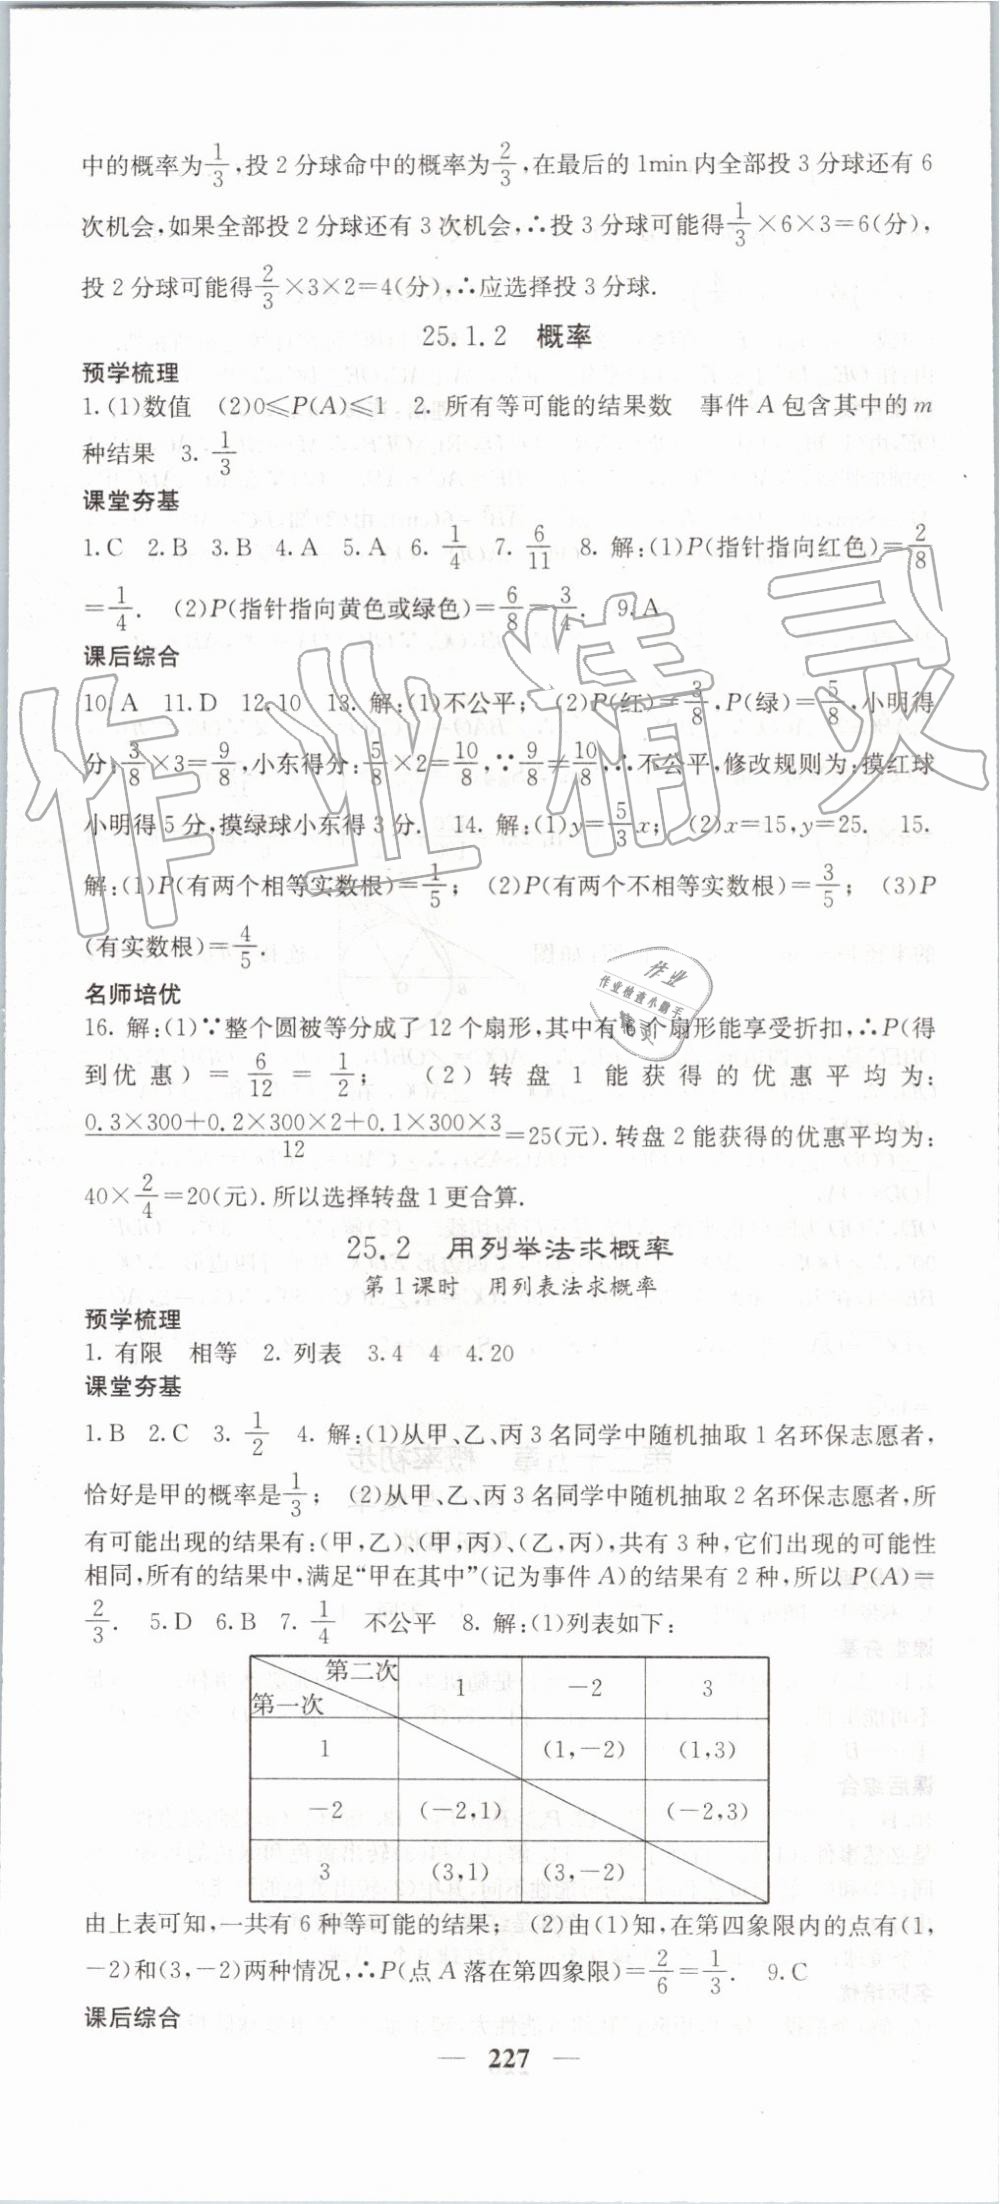 中的概率为1/3,投2分球命中的概率为2/3,在最后的1min内全部投3分球还有6
次机会,如果全部投2分球还有3次机会,∴投3分球可能得1/3×6×3=6(分),
投2分球可能得2/3×3×2=4(分),∴应选择投3分球.
25.1.2 概率
预学梳理
1.(1)数值 (2)0≤P(A)≤1 2. 所有等可能的结果数 事件A包含其中的m
种结果 3. 1/3
课堂夯基
1.C 2.B 3.B 4.A 5.A 6. 1/4 7. 6/11 8. 解:(1)P(指针指向红色)=2/8
=1/4. (2)P(指针指向黄色或绿色)=6/8=3/4. 9.A
课后综合
10.A 11.D 12.10 13. 解:(1)不公平; (2)P(红)=3/8,P(绿)=5/8,小明得
分:3/8×3=9/8,小东得分:5/8×2=10/8,∵9/8≠10/8,∴不公平,修改规则为:摸红球
小明得5分,摸绿球小东得3分. 14. 解:(1)y=5/3x; (2)x=15,y=25. 15.
解:(1)P(有两个相等实数根)=1/5; (2)P(有两个不相等实数根)=3/5; (3)P
(有实数根)=4/5.
名师培优
16. 解:(1)∵整个圆被等分成了12个扇形,其中有6个扇形能享受折扣,∴P(得
到优惠)=6/12=1/2; (2)转盘1能获得的优惠平均为:
(0.3×300+0.2×300×2+0.1×300×3)/12=25(元).转盘2能获得的优惠平均为:
40×2/4=20(元).所以选择转盘1更合算.
25.2 用列举法求概率
第1课时 用列表法求概率
预学梳理
1. 有限 相等 2. 列表 3.4 4 4.20
课堂夯基
1.B 2.C 3. 1/2 4. 解:(1)从甲、乙、丙3名同学中随机抽取1名环保志愿者,
恰好是甲的概率是1/3; (2)从甲、乙、丙3名同学中随机抽取2名环保志愿者,所
有可能出现的结果有:(甲,乙)、(甲,丙)、(乙,丙),共有3种,它们出现的可能性
相同,所有的结果中,满足“甲在其中”(记为事件A)的结果有2种,所以P(A)=
2/3. 5.D 6.B 7. 1/4 不公平 8. 解:(1)列表如下:
第二次 第一次 1 -2 3
1 (1,-2) (1,3)
-2 (-2,1) (-2,3)
3 (3,1) (3,-2)
由上表可知,一共有6种等可能的结果; (2)由(1)知,在第四象限内的点有(1,
-2)和(3,-2)两种情况,∴P(点A落在第四象限)=2/6=1/3. 9.C
课后综合
— 227 —
作业精灵
作业
作业检查小霸手
精灵